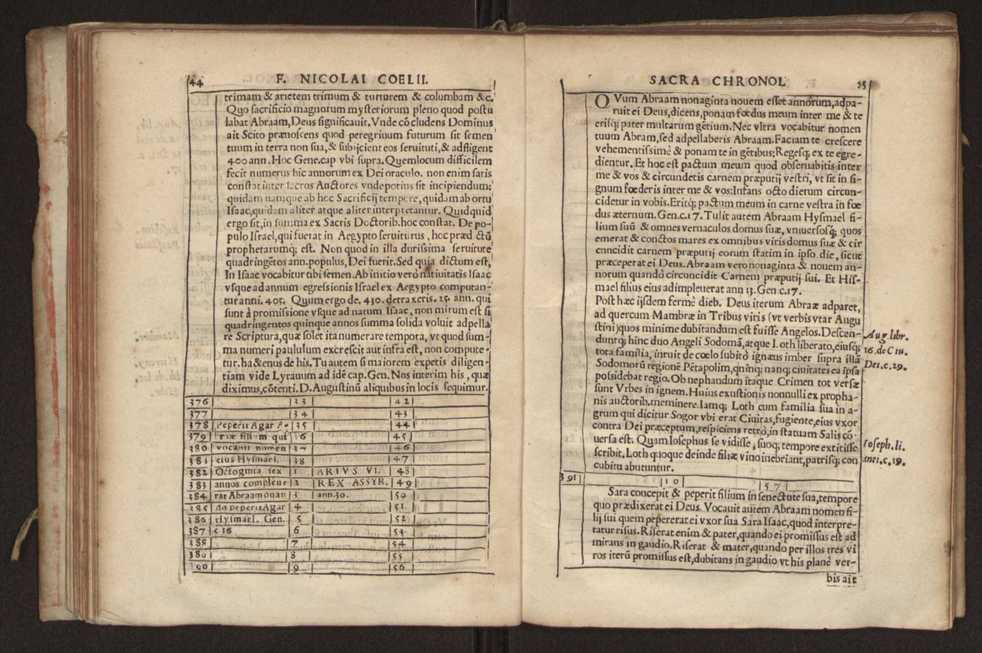 44 F. NICOLAI COELII.
trimam & arietem trimum & turturem & columbam &c.
Quo sacrificio magnorum mysteriorum pleno quod postu
labat Abraam, Deus significauit, Vnde cōcludens Dominus
ait Scito prænoscens quod peregrinum futurum sit semen
tuum in terra non sua, & subijcient eos seruituti, & adfligent
400 ann. Hoc Gene.cap vbi supra. Quemlocum difficilem
fecit numerus hic annorum ex Dei oraculo. non enim saris
constat inter sacros Auctores vnde potius sit incipiendum;
quidam namque ab hoc Sacrificij tempore, quidam ab ortu
Isaac, quidam aliter atque aliter interpretantur. Quidquid
ergo sit, in summa ex Sacris Doctorib. hoc constat. De po-
pulo Israel, qui fuerat in Aegypto seruiturus, hoc præd ctū
propherarumq; est. Non quod in illa durissima seruitute
quadringētos ann. populus, Dei fuerit. Sed quia dictum est,
In Isaac vocabitur tibi semen. Ab initio verò natiuitatis Isaac
vsque ad annum egressionis Israel ex Aegypto computan-
tur anni. 405. Quum ergo de. 430. detraxeris. 25. ann. qui
sunt à promissione vsque ad natum Isaac, non mirum est si
quadringentos quinque annos summa solida voluit adpella
re Scriptura, quæ solet ita numerare tempora, vt quod sum-
ma numeri paululum excrescit aut infra est, non compute-
tur. hactenus de his. Tu autem si maiorem expetis diligen-
tiam vide Lyranum ad idē cap. Gen. Nos interim his, quæ
diximus, cōtenti. D. Augustinū aliquibus in locis sequimur.
376 33 42
377 34 43
378 Peperit Agar A- 35 44
379 braæ filium qui 36 45
380 vocauit nomen 37 46
381 eius Hysmael. 38 47
382 Octoginta sex 1 ARIVS VI. 48
383 annos compleue 2 REX ASSYR. 49
384 rat Abraam quan 3 ann.30. 50
385 do peperit Agar 4 51
386 Hysmael. Gen. 5 52
387 c 16 6 53
388 7 54
389 8 55
390 9 56
SACRA CHRONOL 25
QVum Abraam nonaginta nouem esset annorum, adpa-
ruit ei Deus, dicens, ponam fœdus meum inter me & te
erisq; pater multarum gētium. Nec vltra vocabitur nomen
tuum Abram, sed adpellaberis Abraam. Faciam te crescere
vehementissimè & ponam te in gētibus; Regesq; ex te egre-
dientur. Et hoc est pactum meum quod obseruabitis inter
me & vos & circundetis carnem præputij vestri, vt sit in si-
gnum fœderis inter me & vos: Infans octo dierum circun-
cidetur in vobis. Eritq; pactum meum in carne vestra in fœ
dus æternum. Gen.c.17. Tulit autem Abraam Hysmael fi-
lium suū & omnes vernaculos domus suæ, vniuersosq; quos
emerat & cunctos mares ex omnibus viris domus suæ & cir
cuncidit carnem præputij eorum statim in ipso die, sicut
præceperat ei Deus. Abraam vero nonaginta & nouem an-
norum quandò circuncidit Carnem præputij sui. Et His-
mael filius eius adimpleuerat ann 13. Gen c.17.
Post hæc ijsdem fermè dieb. Deus iterum Abraæ adparet,
ad quercum Mambræ in Tribus viris (vt verbis vtar Augu
stini) quos minime dubitandum est fuisse Angelos. Descen-
dūtq; hinc duo Angeli Sodomā, atque Loth liberato, eiusq;
tota familia, inruit de cœlo subitò igneus imber supra illā
Sodomorū regionē Pētapolim, quinq; nanq; ciuitates ea ipsa
possidebat regio. Ob nephandum itaque Crimen tot versæ
sunt Vrbes in ignem. Huius exustionis nonnulli ex propha-
nis auctorib. meminere. Iamq; Loth cum familia sua in a-
grum qui dicitur Sogor vbi erat Ciuitas, fugiente, eius vxor
contra Dei præceptum, respiciens retrò, in statuam Salis cō
uersa est. Quam Iosephus se vidisse, suoq; tempore extitisse
scribit. Loth quoque deinde filiæ vino inebriant, patrisq; con
cubitu abutuntur.
Aug libr.
16. de Ciu.
Dei.c.29.
Ioseph. li.
anti.c.19.
391 10 57
Sara concepit & peperit filium in senectute sua, tempore
quo prædixerat ei Deus. Vocauit autem Abraam nomen fi-
lij sui quem pepererat ei vxor sua Sara Isaac, quod interpre-
tatur risus. Riserat enim & pater, quando ei promissus est ad
mirans in gaudio. Riserat & mater, quando per illos tres vi
ros iterū promissus est, dubitans in gaudio vt his planè ver-
bis ait